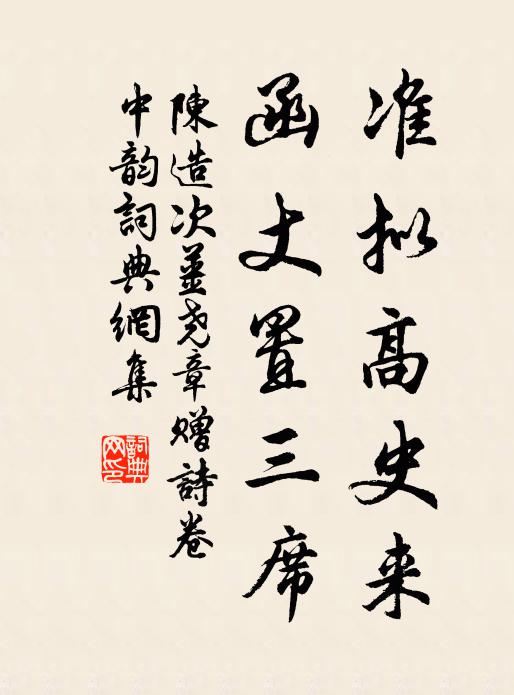 准拟高史来
函丈置三席
陳造次姜尧章赠詩卷
中韵詞典網集
詞典
网印